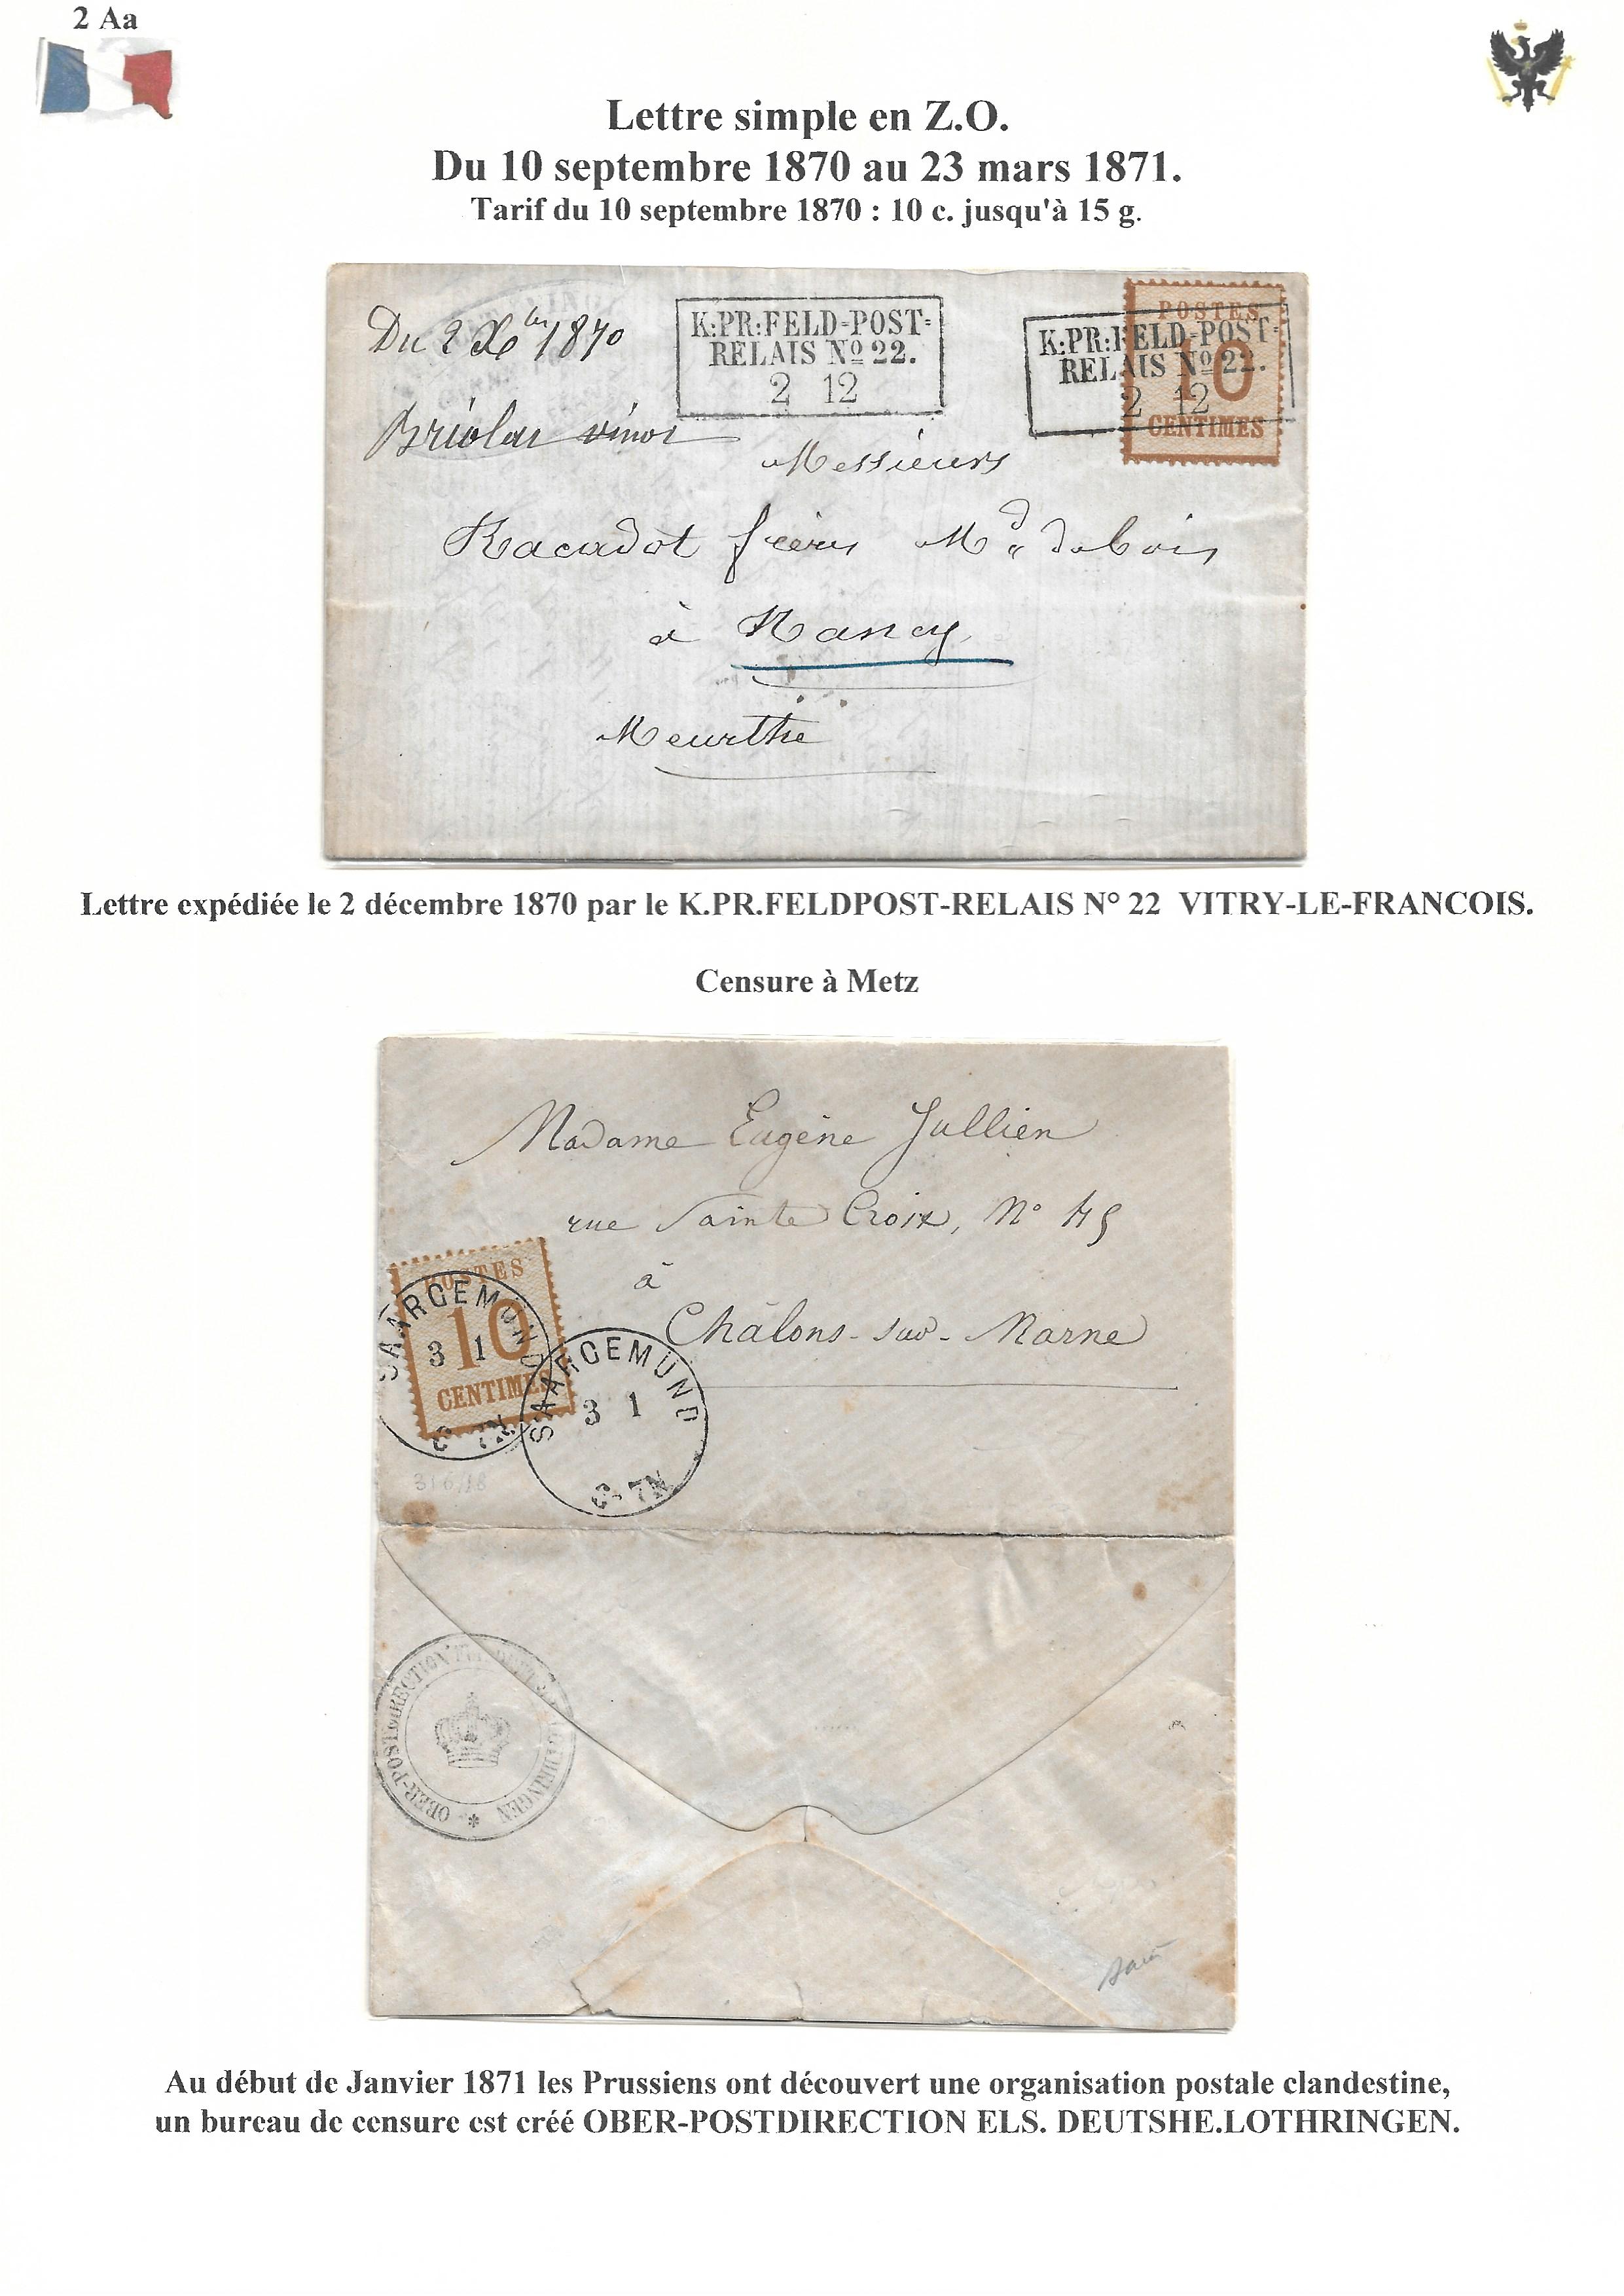 2 Aa
Lettre simple en Z.O.
Du 10 septembre 1870 au 23 mars 1871.
Tarif du 10 septembre 1870 : 10 c. jusqu'à 15 g.
Du 2 Xbre 1870
K:PR:FELD-POST-
RELAIS No 22.
2 12
POSTES
10
CENTIMES
K:PR:FELD-POST-
RELAIS No 22.
2 12
Messieurs
Racadot frères Md de bois
à Nancy
Meurthe
Lettre expédiée le 2 décembre 1870 par le K.PR.FELDPOST-RELAIS N° 22 VITRY-LE-FRANCOIS.
Censure à Metz
Madame Eugène Jullien
rue Sainte Croix, N° 45
à
Châlons-sur-Marne
POSTES
10
CENTIMES
SAARGEMÜND
3 1
SAARGEMÜND
3 1
6-7N
OBER-POSTDIRECTION LOTHRINGEN
Au début de Janvier 1871 les Prussiens ont découvert une organisation postale clandestine,
un bureau de censure est créé OBER-POSTDIRECTION ELS. DEUTSHE.LOTHRINGEN.